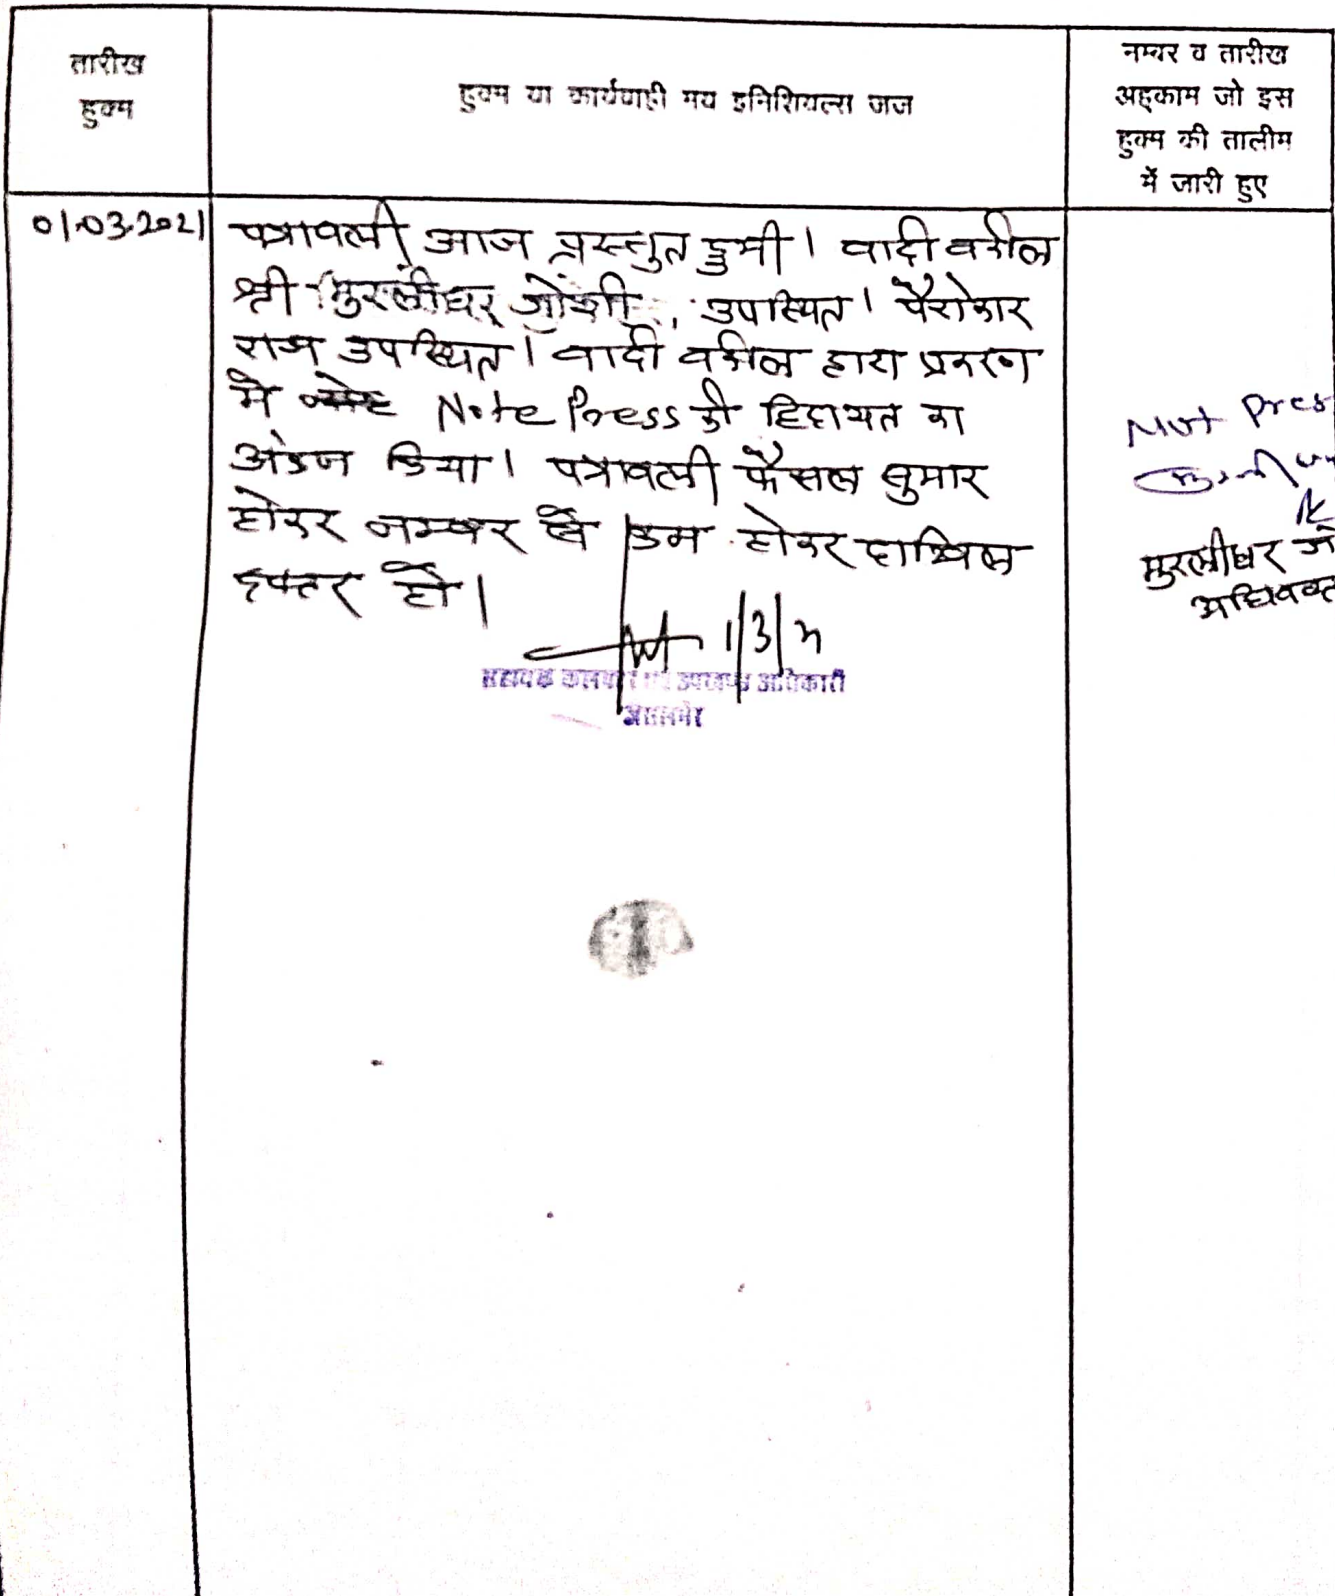 तारीख
हुक्म
हुक्म या कार्यवाही मय इनिशियल्स जज
नम्बर व तारीख
अहकाम जो इस
हुक्म की तालीम
में जारी हुए
01.03.2021
पत्रावली आज प्रस्तुत हुयी। वादी वकील
श्री मुरलीधर जोशी, उपस्थित। पैरोकार
राज उपस्थित। वादी वकील द्वारा प्रकरण
मे Note Press की हिदायत का
अंकन किया। पत्रावली फैसल शुमार
होकर नम्बर से कम होकर दाखिल
दफ्तर हो।
1/3/21
सहायक कलक्टर एवं उपखण्ड अधिकारी
जैसलमेर
Not Pres
मुरलीधर जो
अधिवक्त